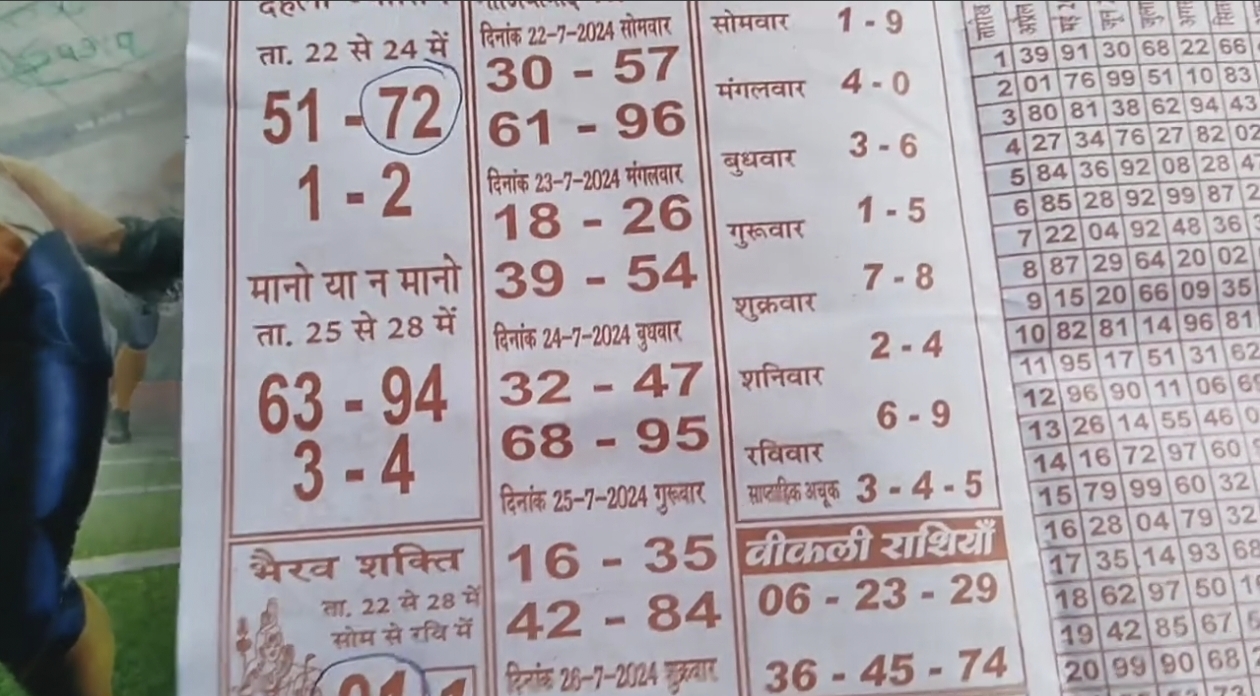 ता. 22 से 24 में
51 - 72
1 - 2
मानो या न मानो
ता. 25 से 28 में
63 - 94
3 - 4
भैरव शक्ति
ता. 22 से 28 में
सोम से रवि में
दिनांक 22-7-2024 सोमवार
30 - 57
61 - 96
दिनांक 23-7-2024 मंगलवार
18 - 26
39 - 54
दिनांक 24-7-2024 बुधवार
32 - 47
68 - 95
दिनांक 25-7-2024 गुरूवार
16 - 35
42 - 84
दिनांक 26-7-2024 शुक्रवार
सोमवार 1 - 9
मंगलवार 4 - 0
बुधवार 3 - 6
गुरूवार 1 - 5
शुक्रवार 7 - 8
शनिवार 2 - 4
रविवार 6 - 9
साप्ताहिक अचूक 3 - 4 - 5
वीकली राशियाँ
06 - 23 - 29
36 - 45 - 74
1 39 91 30 68 22 66
2 01 76 99 51 10 83
3 80 81 38 62 94 43
4 27 34 76 27 82 02
5 84 36 92 08 28
6 85 28 92 99 87
7 22 04 92 48 36
8 87 29 64 20 02
9 15 20 66 09 35
10 82 81 14 96 81
11 95 17 51 31 62
12 96 90 11 06
13 26 14 55 46
14 16 72 97 60
15 79 99 60 32
16 28 04 79 32
17 35 14 93
18 62 97 50
19 42 85 67
20 99 90 68